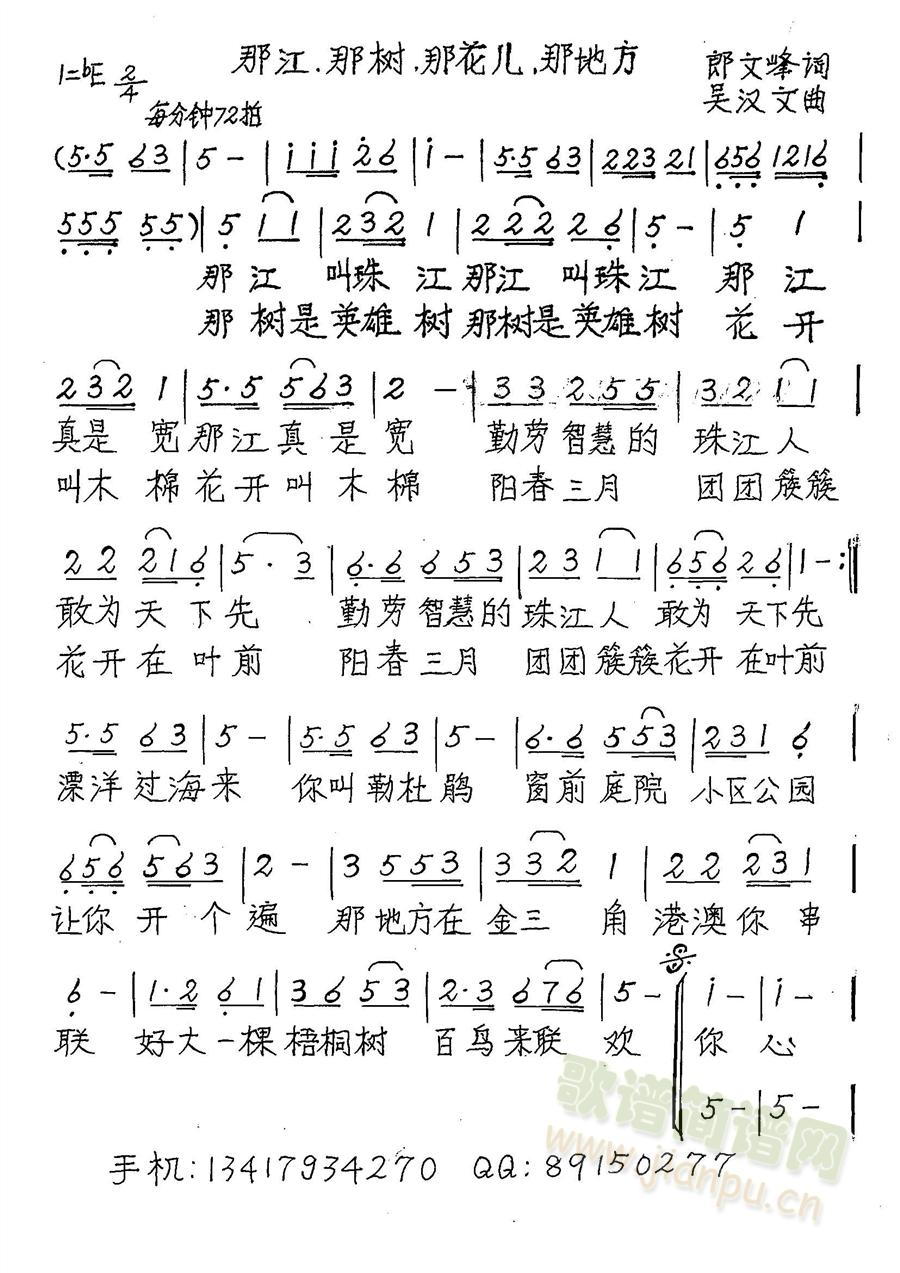 那江、那树、那花儿、那地方
1=bE 2/4
郎文峰词
吴汉文曲
每分钟72拍
(5·5 63 | 5 - | iii 26 | i - | 5·5 63 | 223 21 | 656 1216 |
555 55) | 5 11 | 232 1 | 2222 26 | 5 - | 5 1 |
那江 叫珠 江那江 叫珠江 那江
那树是英雄树那树是英雄树 花开
232 1 | 5·5 563 | 2 - | 33 255 | 32 11 |
真是 宽那江真是宽 勤劳智慧的 珠江人
叫木棉花开叫木棉 阳春三月 团团簇簇
22 216 | 5·3 | 6·6 653 | 23 11 | 656 26 | 1 - :||
敢为天下先 勤劳智慧的珠江人 敢为 天下先
花开在叶前 阳春三月 团团簇簇花开在叶前
5·5 63 | 5 - | 5·5 63 | 5 - | 6·6 553 | 231 6 |
漂洋过海来 你叫勒杜鹃 窗前庭院 小区公园
656 563 | 2 - | 3 553 | 332 1 | 22 231 |
让你开个遍 那地方在金三 角港澳你串
6 - | 1·2 61 | 36 53 | 2·3 676 | 5 - | i - | i - |
联 好大一棵梧桐树 百鸟来联 欢 你心
5 - | 5 - |
手机:13417934270 QQ:89150277
歌谱简谱网
www.jianpu.cn